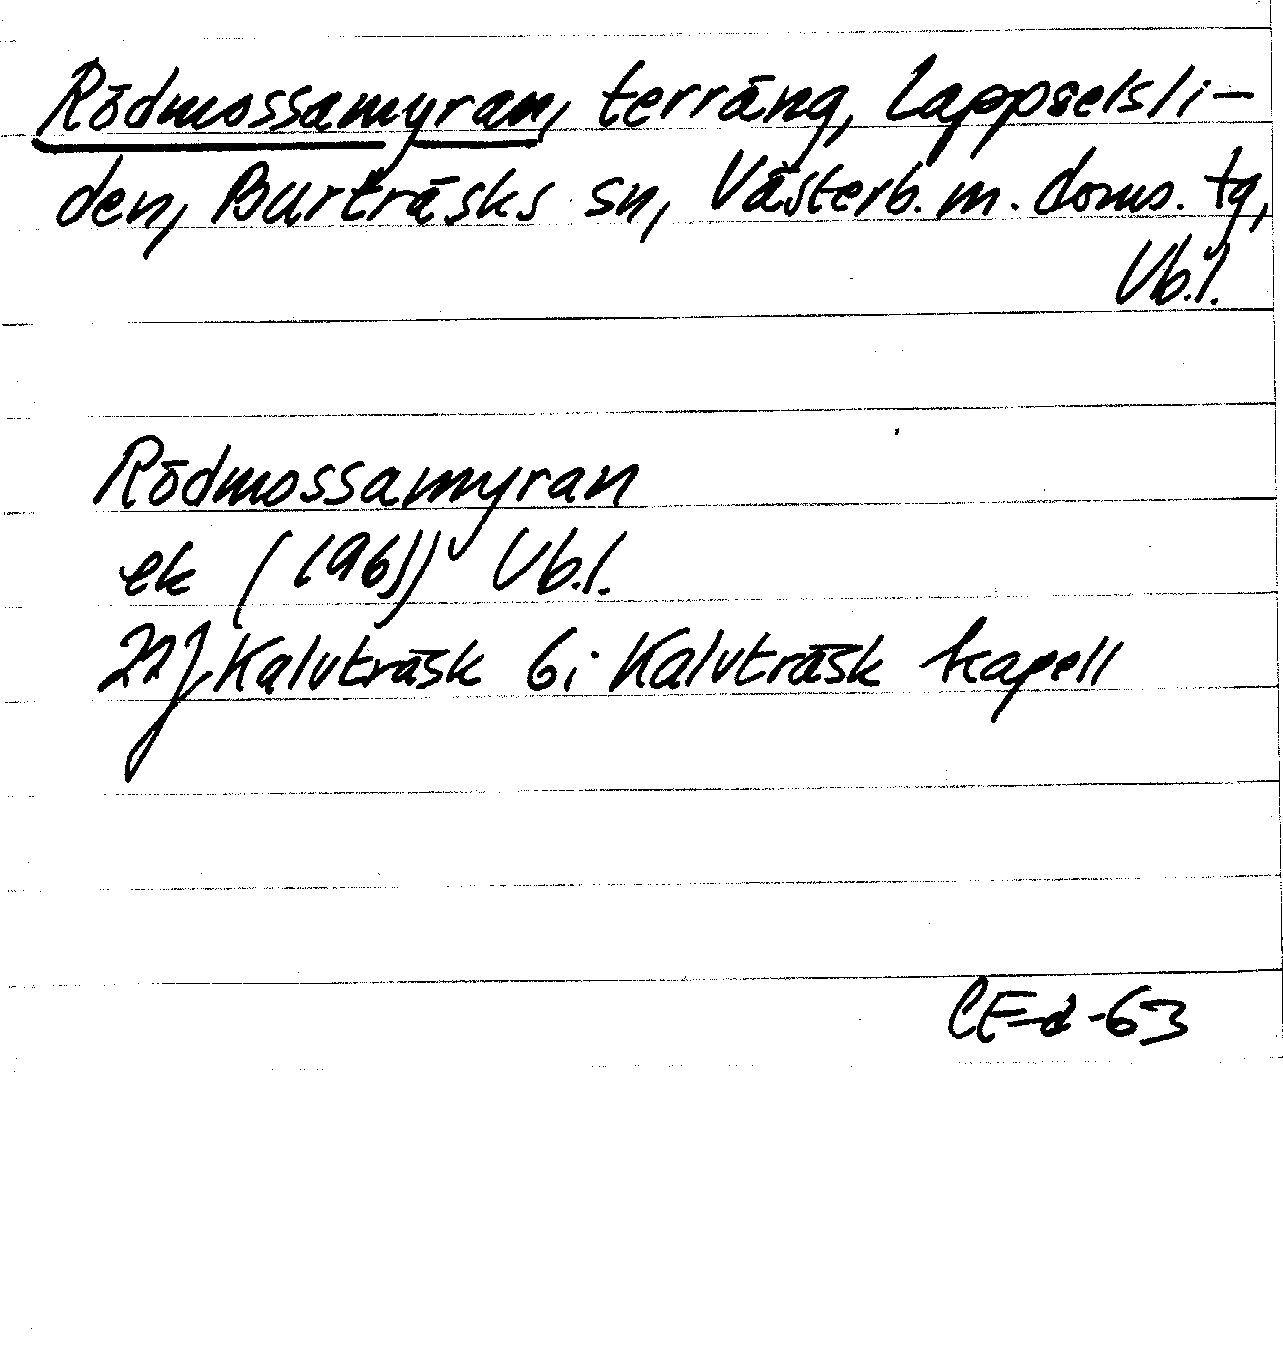 Rödmossamyran, terräng, Lappselsli-
den, Burträsks sn, Västerb. m. doms. tg,
Vb.l.
Rödmossamyran
ek (1961) Vb.l.
22J Kalvträsk 6i Kalvträsk kapell
CE-d -63